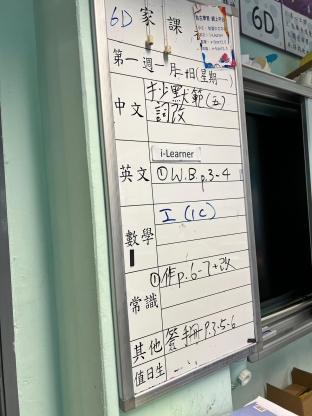 6D 家課
6D
第一週 月 日(星期一)
中文 抄默範(五)
詞改
i-Learner
英文 ①W.B.p.3-4
數學 工(1C)
常識 ①作p.6-7+改
其他 簽手冊P.3.5-6
值日生